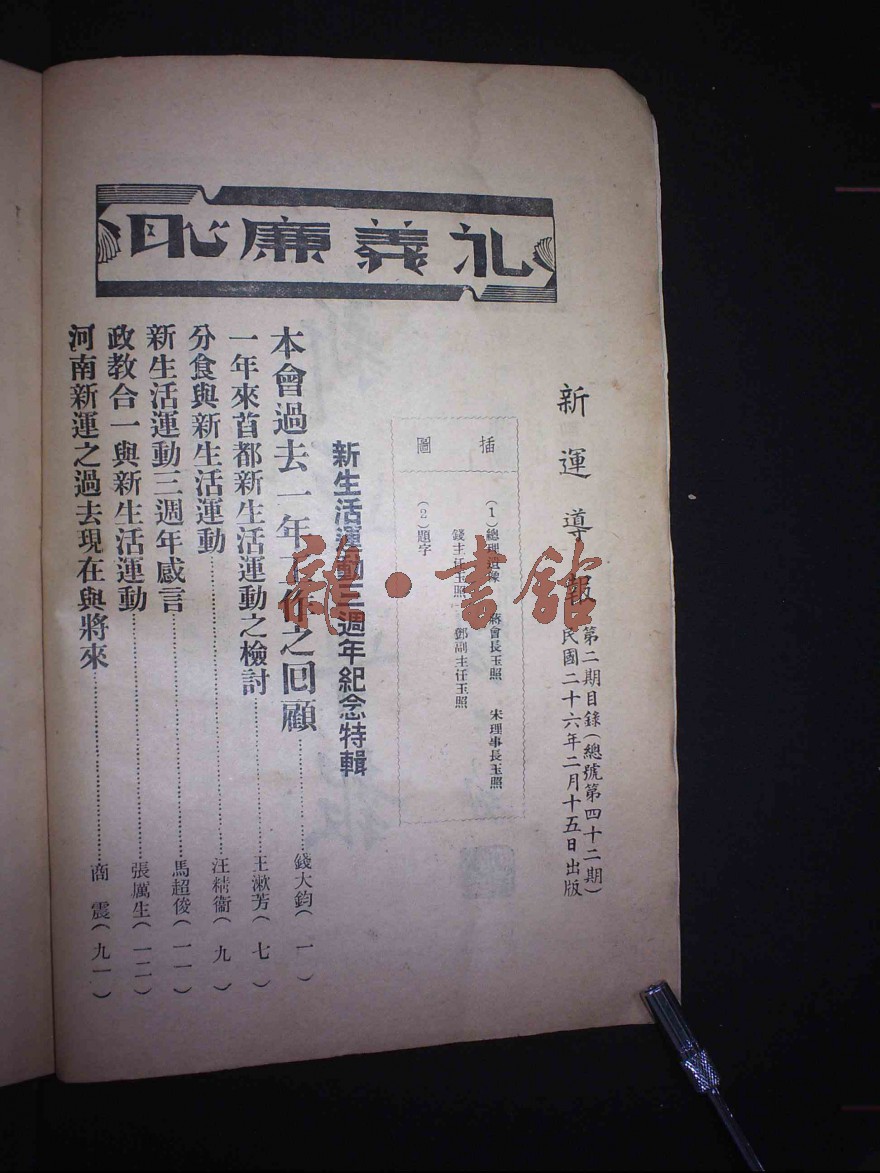 礼義廉恥
新運導報
第二期目錄(總號第四十二期)
民國二十六年二月十五日出版
插圖
(1)總理遺像 蔣會長玉照 宋理事長玉照
錢主任玉照 鄧副主任玉照
(2)題字
新生活運動三週年紀念特輯
本會過去一年工作之回顧……錢大鈞(一)
一年來首都新生活運動之檢討……王漱芳(七)
分食與新生活運動……汪精衞(九)
新生活運動三週年感言……馬超俊(一一)
政教合一與新生活運動……張厲生(一二)
河南新運之過去現在與將來……商震(九一)
雜·書館